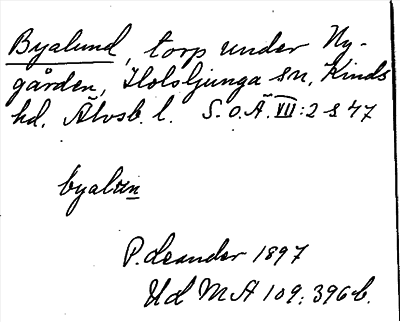 Byalund, torp under Ny-
gården, Holsljunga sn, Kinds
hd, Älvsb. l. S.O.Ä. VII:2 s 47
byalun
P. Leander 1897
Ud M A 109: 396 b.